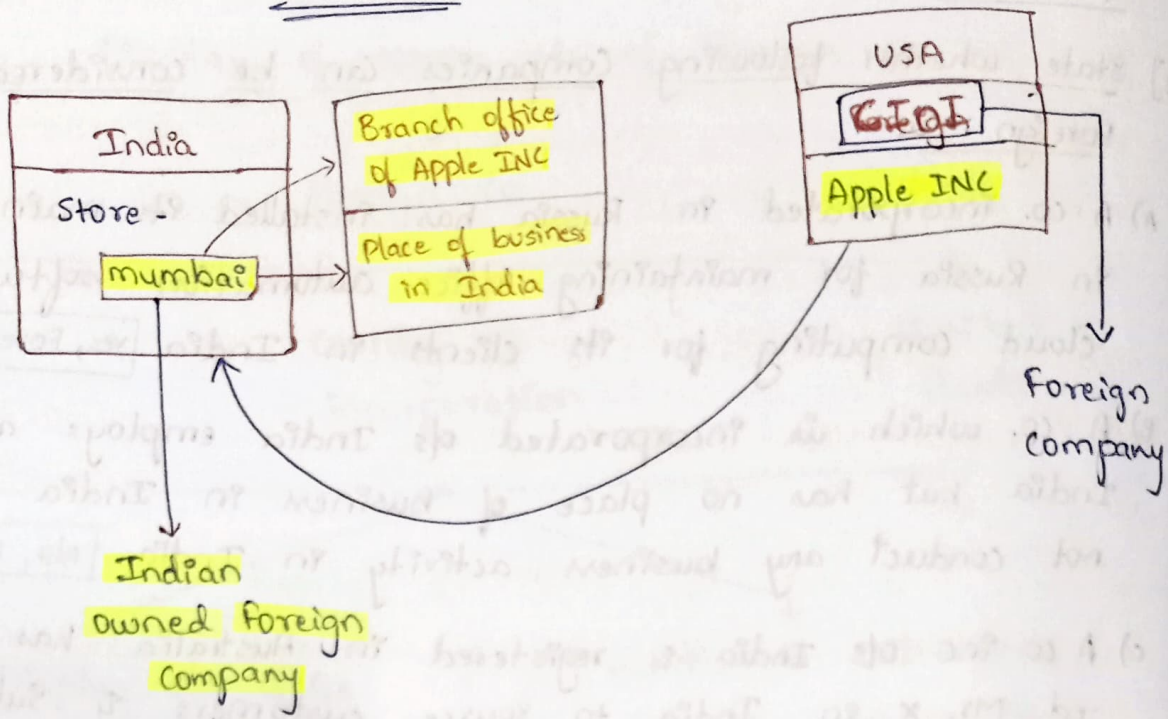 India
Store -
mumbai
Branch office
of Apple INC
Place of business
in India
USA
Apple INC
Foreign
Company
Indian
owned Foreign
Company